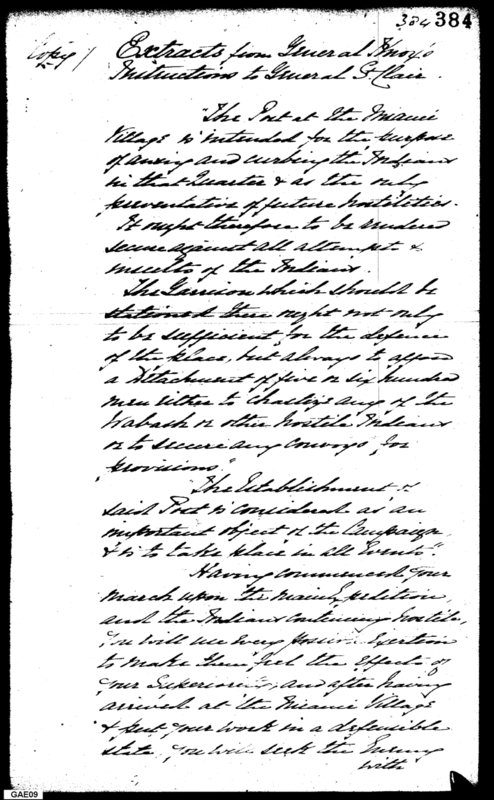 384 384
Copy / Extracts from General Knox's
Instructions to General St. Clair.
"The Post at the Miami
Village is intended for the purpose
of awing and curbing the Indians
in that Quarter & as the only
preventative of future hostilities.
It ought therefore to be rendered
secure against all attempts &
insults of the Indians.
The Garrison which should be
stationed there ought not only
to be sufficient for the defence
of the place, but always to afford
a Detachment of five or six hundred
men either to chastise any of the
Wabash or other hostile Indians
or to secure any convoys for
provisions."
"The Establishment of
said Post is considered as an
important object of the Campaign
& is to take place in all Events".
Having commenced your
march upon the main Expedition,
and the Indians continuing hostile,
you will use every possible Exertion
to make them feel the Effects of
your Superiority, and after having
arrived at the Miami Village
& put your work in a defensible
state, you will seek the Enemy
with
GAE09